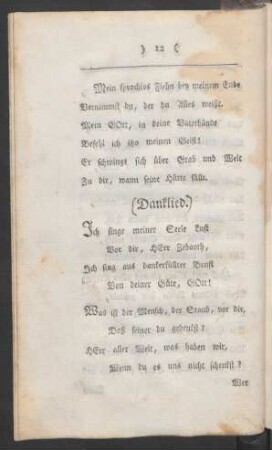 ) 12 (
Mein sprachlos Flehn bey meinem Ende
Vernimmst du, der du Alles weißt.
Mein GOtt, in deine Vaterhände
Befehl ich itzo meinen Geist!
Er schwingt sich über Grab und Welt
Zu dir, wann seine Hütte fällt.
(Danklied.)
Ich singe meiner Seele Lust
Vor dir, HErr Zebaoth,
Ich sing aus dankerfüllter Brust
Von deiner Güte, GOtt!
Was ist der Mensch, der Staub, vor dir,
Daß seiner du gedenkst?
HErr aller Welt, was haben wir,
Wenn du es uns nicht schenkst?
Wer